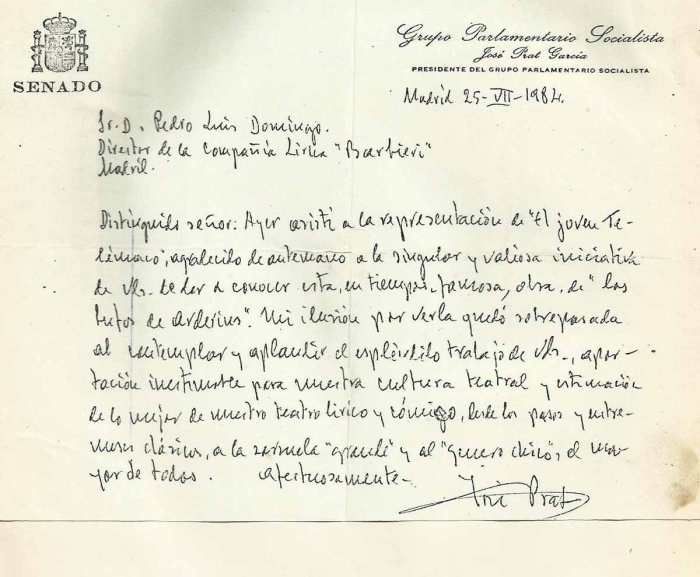 SENADO
Grupo Parlamentario Socialista
José Prat García
PRESIDENTE DEL GRUPO PARLAMENTARIO SOCIALISTA
Madrid 25-VII-1984.
Sr. D. Pedro Luis Domingo.
Director de la Compañía Lírica "Barbieri"
Madrid.
Distinguido señor: Ayer asistí a la representación de "El joven Te-
lémaco", agradecido de antemano a la singular y valiosa iniciativa
de Vds. de dar a conocer esta, en tiempos famosa, obra, de "los
bufos de Arderius". Mi ilusión por verla quedó sobrepasada
al contemplar y aplaudir el espléndido trabajo de Vds., apor-
tación inestimable para nuestra cultura teatral y estimación
de lo mejor de nuestro teatro lírico y cómico, desde los pasos y entre-
meses clásicos, a la zarzuela "grande" y al "género chico", el ma-
yor de todos. Afectuosamente-
José Prat